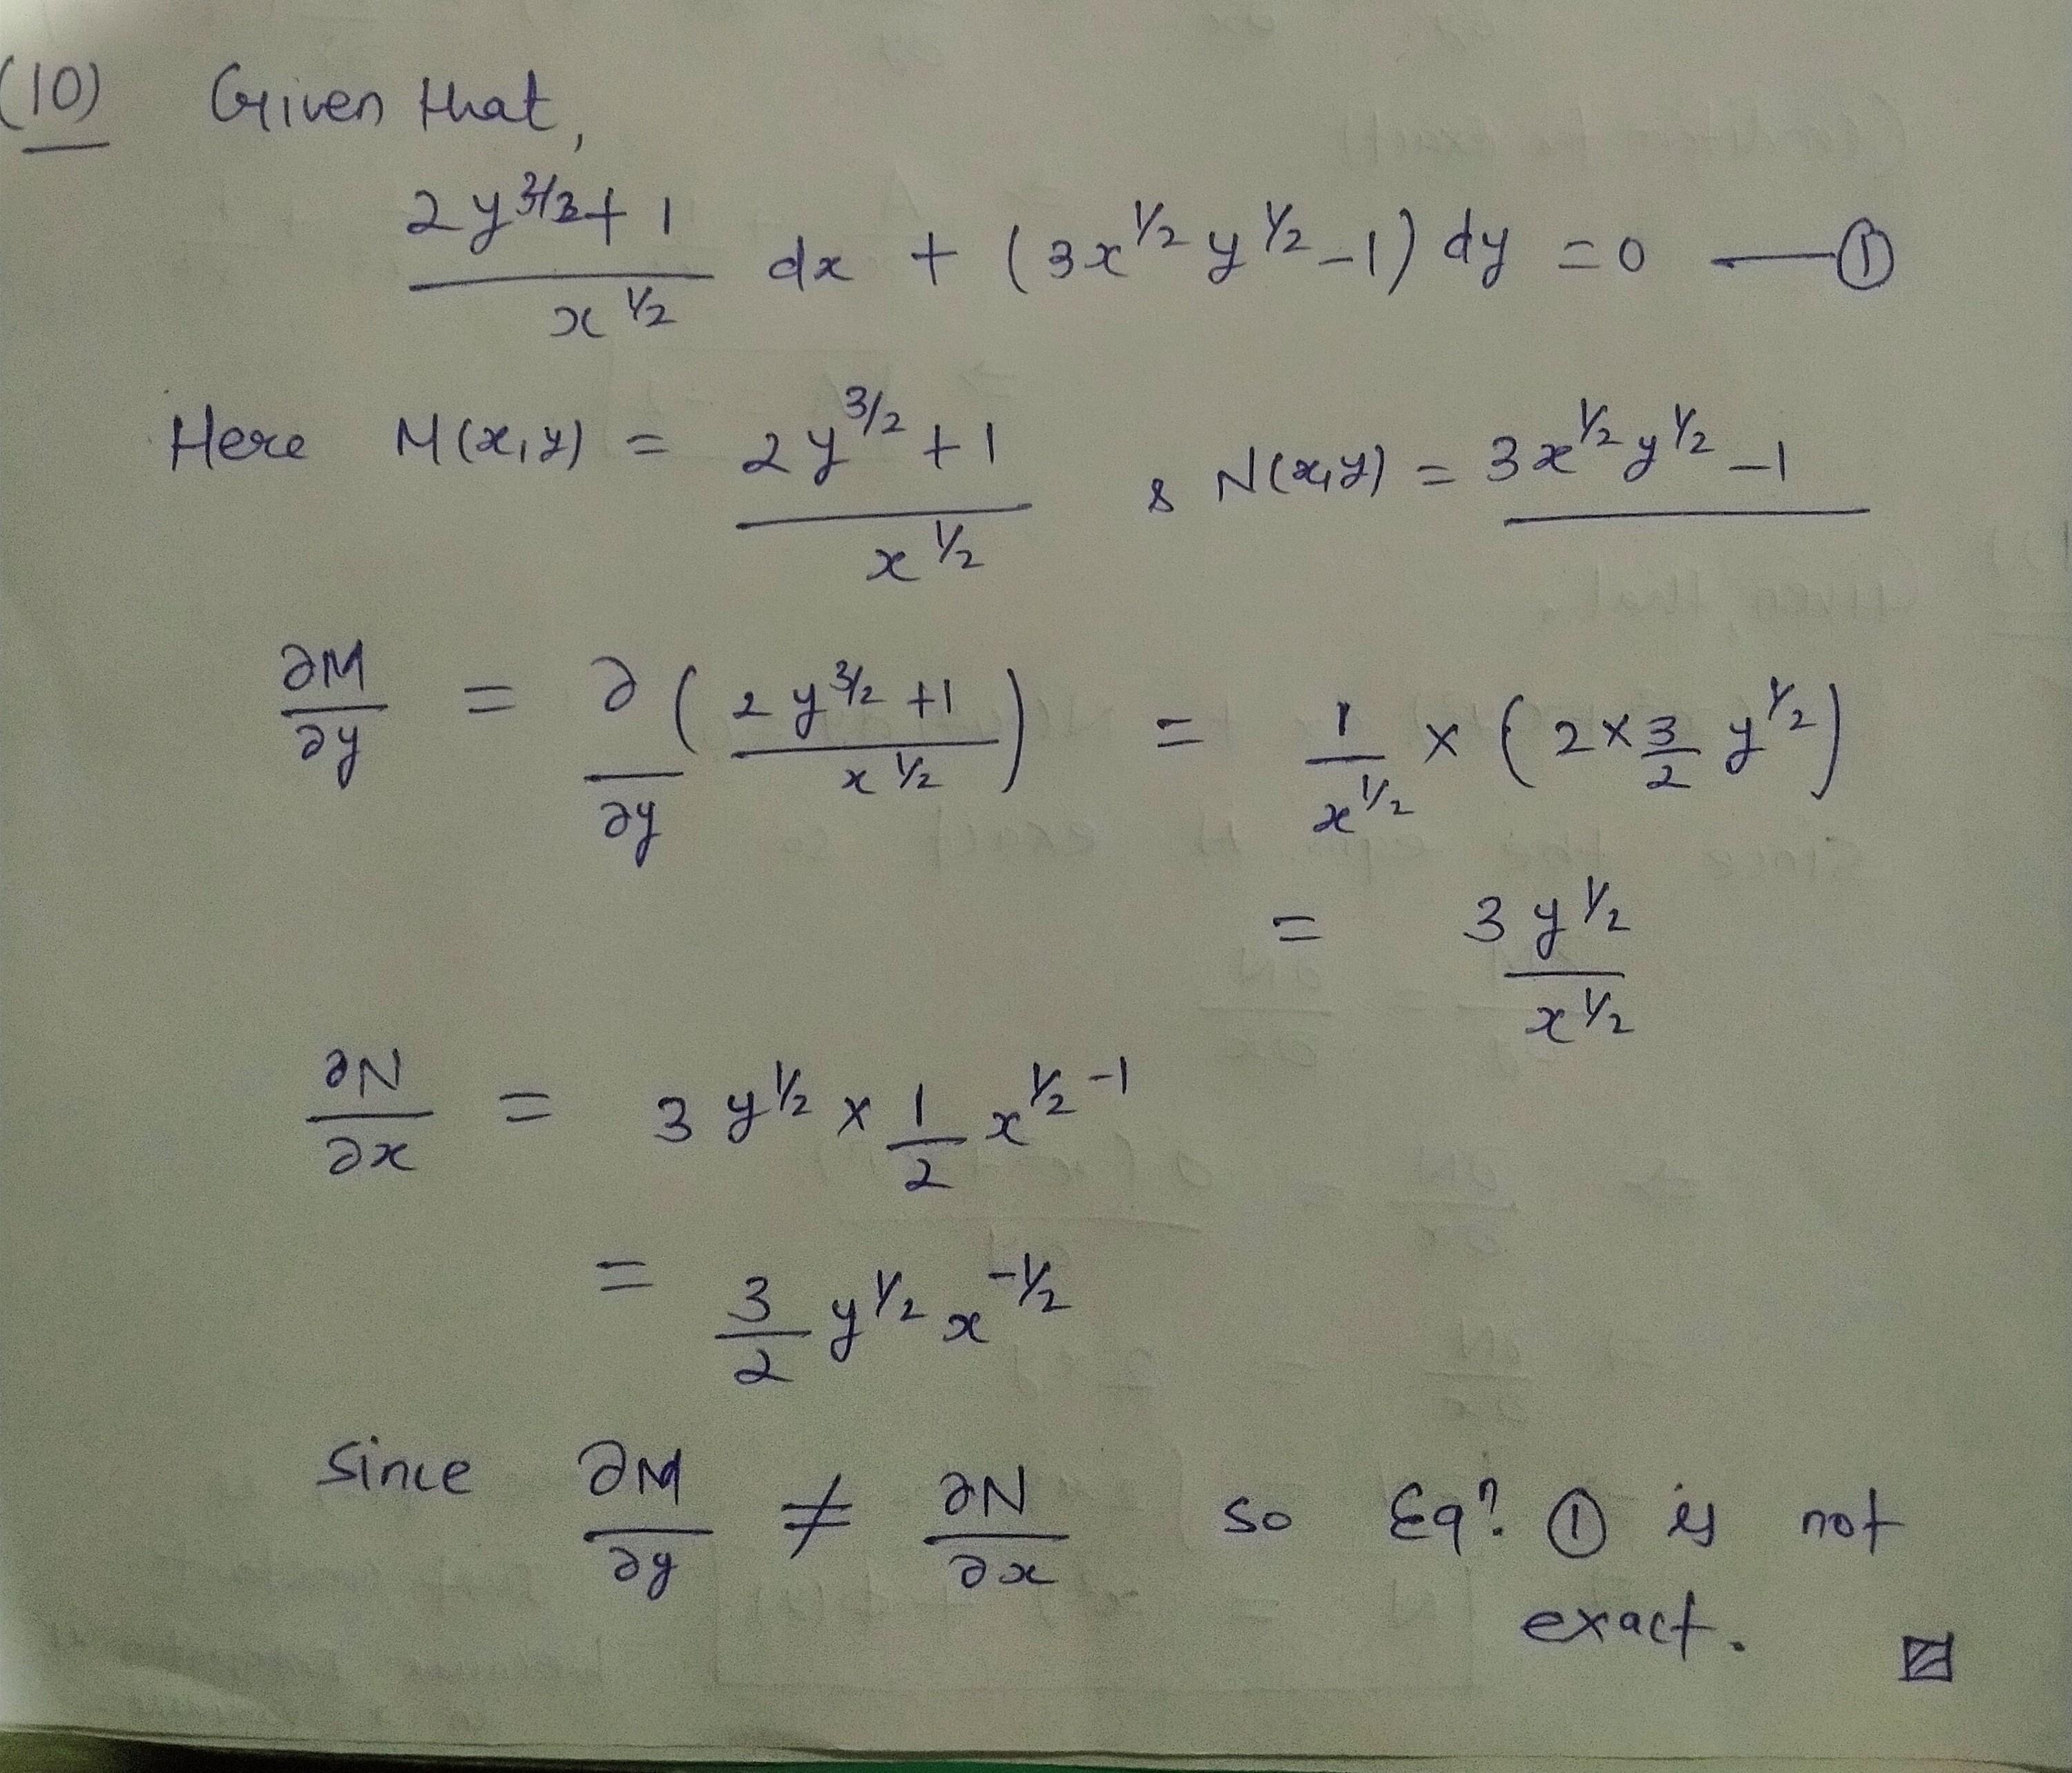 (10) Given that,
(2y^{3/2}+1)/x^{1/2} dx + (3x^{1/2} y^{1/2} -1) dy = 0 — ①
Here M(x,y) = (2y^{3/2}+1)/x^{1/2} & N(x,y) = 3x^{1/2} y^{1/2} -1
∂M/∂y = ∂/∂y ((2y^{3/2}+1)/x^{1/2}) = 1/x^{1/2} × (2×3/2 y^{1/2})
= 3y^{1/2}/x^{1/2}
∂N/∂x = 3y^{1/2} × 1/2 x^{1/2 -1}
= 3/2 y^{1/2} x^{-1/2}
Since ∂M/∂y ≠ ∂N/∂x so Eqⁿ. ① is not
exact.